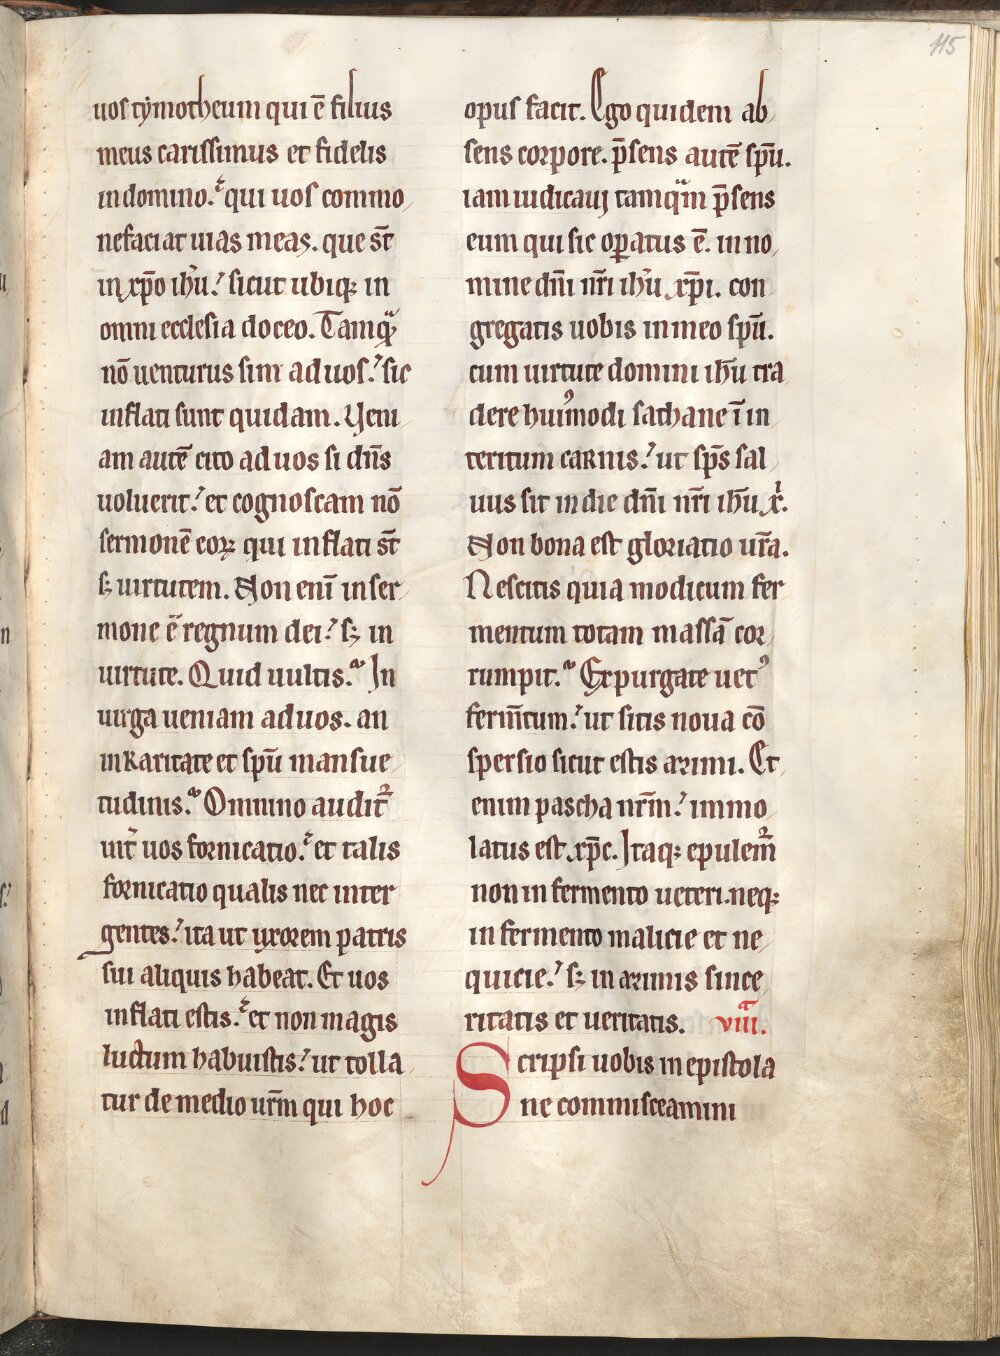 115
uos tymotheum qui ē filius
meus carissimus et fidelis
in domino. qui uos commo
nefaciat uias meas. que st̄
in xp̄o ih̄u. sicut ubiq; in
omni ecclesia doceo. Tamq̄
nō uenturus sim ad uos. sic
inflati sunt quidam. Veni
am autē cito ad uos si dn̄s
uoluerit. et cognoscam nō
sermonē eoꝝ qui inflati st̄
s; uirtutem. Non enī in ser
mone ē regnum dei. s; in
uirtute. Quid uultis. In
uirga ueniam ad uos. an
in karitate et spū mansue
tudinis. Omnino audit᷑
int̄ uos fornicatio. et talis
fornicatio qualis nec inter
gentes. ita ut uxorem patris
sui aliquis habeat. Et uos
inflati estis. et non magis
luctum habuistis. ut tolla
tur de medio ur̄m qui hoc
opus facit. Ego quidem ab
sens corpore. p̄sens autē spū.
iam iudicauj tamq̄m p̄sens
eum qui sic oꝑatus ē. in no
mine dn̄i nr̄i ih̄u xp̄i. con
gregatis uobis in meo spū.
cum uirtute domini ih̄u tra
dere huiꝰmodi sathane ī in
teritum carnis. ut sp̄s sal
uus sit in die dn̄i nr̄i ih̄u x̄.
Non bona est gloriatio ur̄a.
Nescitis quia modicum fer
mentum totam massā cor
rumpit. Expurgate uetꝰ
ferm̄tum. ut sitis noua cō
spersio sicut estis azimi. Et
enim pascha nr̄m. immo
latus est xp̄c. Itaq; epulem᷑
non in fermento ueteri. neq;
in fermento malicie et ne
quicie. s; in azimis since
ritatis et ueritatis. viiiͣ.
Scripsi uobis in epistola
ne commisceamini